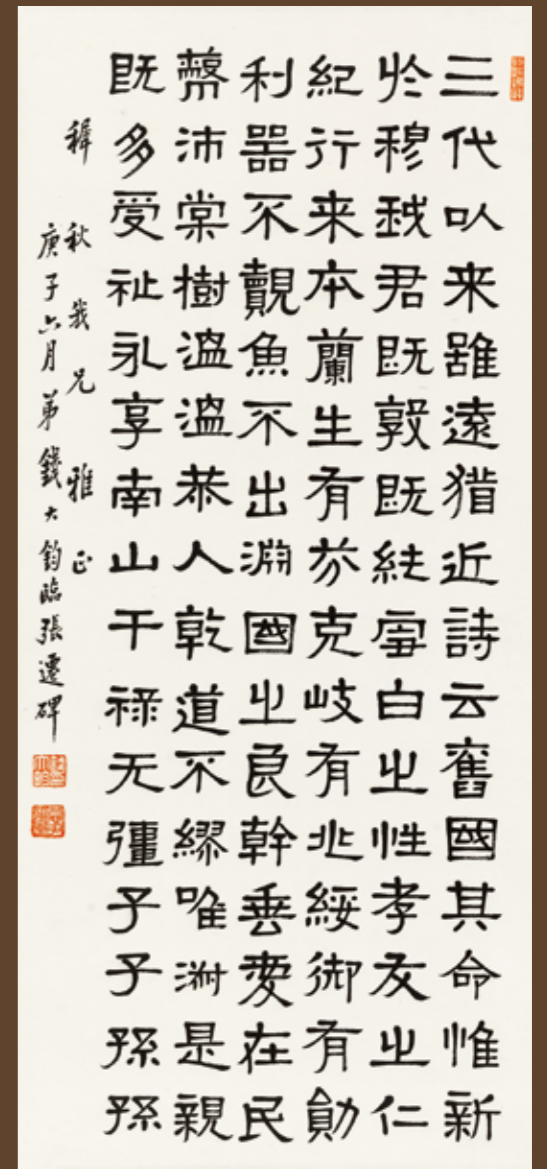 三代以来雖遠猶近詩云舊國其命惟新
於穆我君既敦既純雪白之性孝友之仁
紀行来本蘭生有芬克岐有兆綏御有勛
利器不覿魚不出淵國之良幹垂愛在民
蔽沛棠樹温温恭人乾道不繆唯淑是親
既多受祉永享南山干禄无彊子子孫孫
稺秋我兄雅正
庚子六月弟錢大鈞臨張遷碑